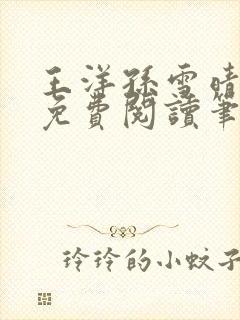 王洋孫雪晴
免費閱讀筆
玲玲的小蚊子